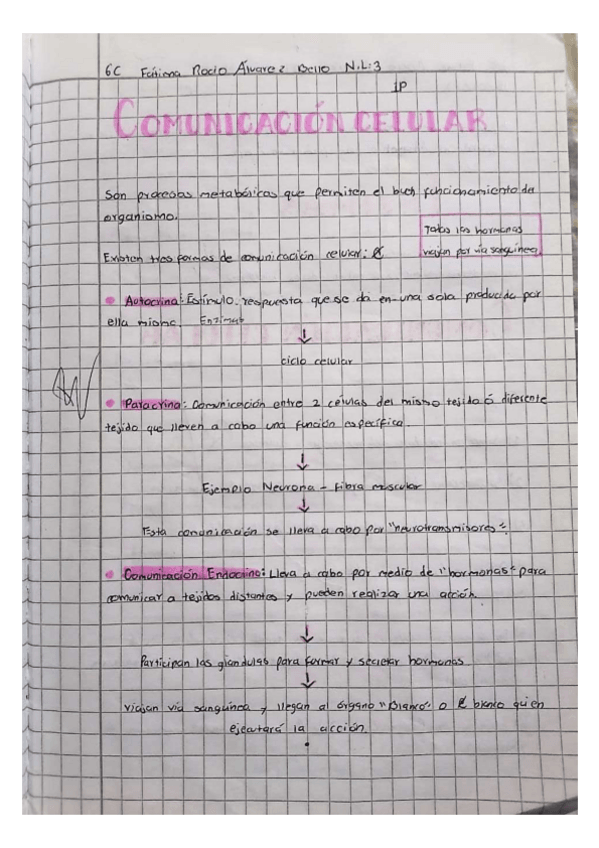 6C Fátima Rocio Álvarez Bello N.L:3
1P
COMUNICACIÓN CELULAR
Son procesos metabólicos que permiten el buen funcionamiento del
organismo.
Todas las hormonas
viajan por vía sanguínea
Existen tres formas de comunicación celular:
• Autocrina: Estímulo. respuesta que se da en una sola producida por
ella misma. Enzimas
↓
ciclo celular
• Paracrina: Comunicación entre 2 células del mismo tejido ó diferente
tejido que lleven a cabo una función específica.
↓
Ejemplo Neurona - Fibra muscular
↓
Esta comunicación se lleva a cabo por "neurotransmisores".
• Comunicación Endocrino: Lleva a cabo por medio de "hormonas" para
comunicar a tejidos distantes y pueden realizar una acción.
↓
Participan las glandulas para formar y secretar hormonas
↓
viajan vía sanguínea y llegan al órgano "Blanco" o blanco quien
ejecutará la acción.